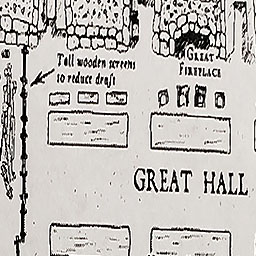 Tall wooden screens
to reduce draft
GREAT
FIREPLACE
GREAT HALL